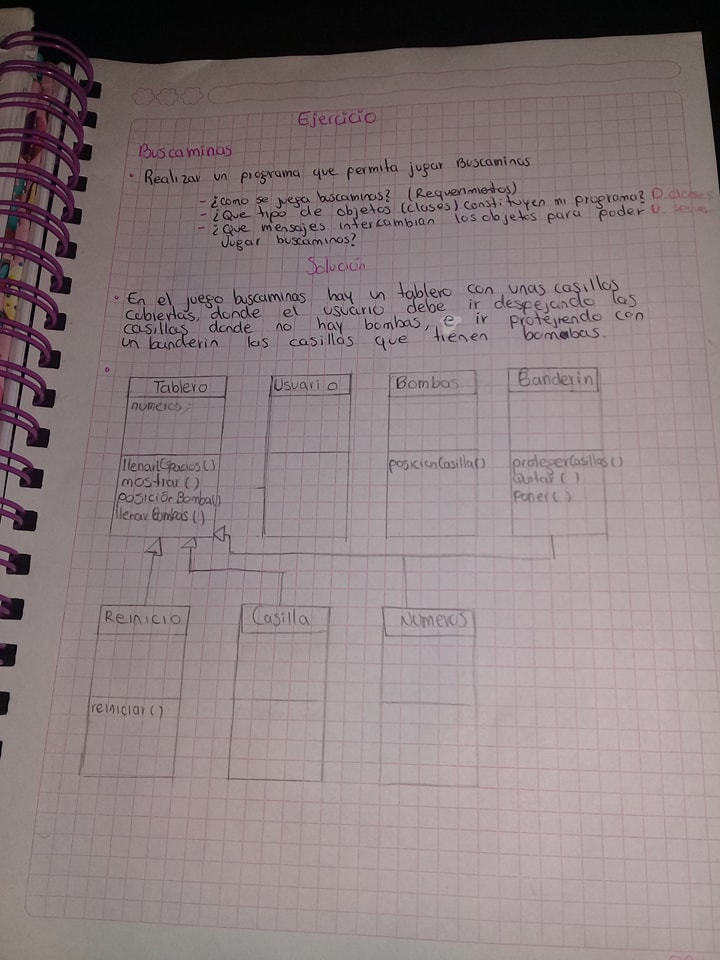 Ejercicio
Buscaminas
• Realizar un programa que permita jugar Buscaminas
- ¿como se juega buscaminas? (Requerimientos)
- ¿Que tipo de objetos (clases) constituyen mi programa? D. clases
- ¿Que mensajes intercambian los objetos para poder
Jugar buscaminas?
Solución
• En el juego buscaminas hay un tablero con unas casillas
cubiertas, donde el usuario debe ir despejando las
casillas donde no hay bombas, e ir protejiendo con
un banderin las casillas que tienen bombas.
Tablero
numeros
llenarEspacios()
mostrar()
posiciónBomba()
llenarBombas()
Usuario
Bombas
posicionCasilla()
Banderin
protegerCasillas()
Quitar()
Poner()
Reinicio
reiniciar()
Casilla
Numeros